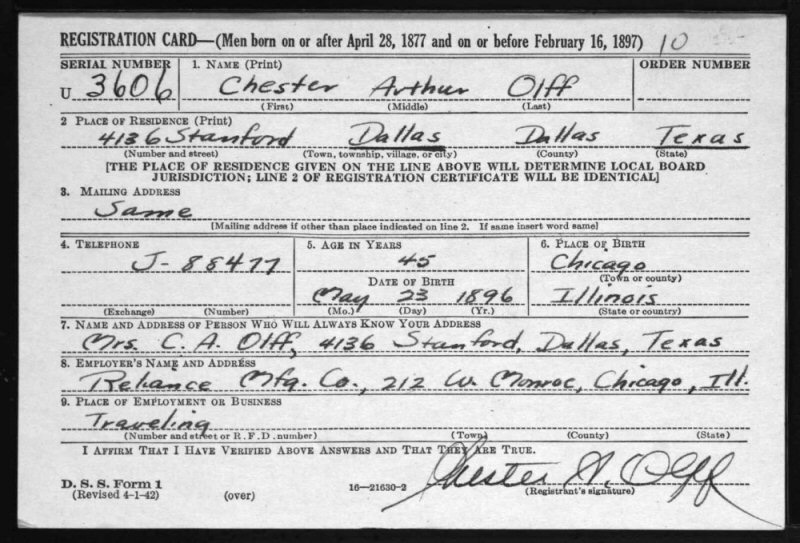 REGISTRATION CARD—(Men born on or after April 28, 1877 and on or before February 16, 1897) 10
SERIAL NUMBER 1. NAME (Print) ORDER NUMBER
U 3606 Chester Arthur Olff
(First) (Middle) (Last)
2 PLACE OF RESIDENCE (Print)
4136 Stanford Dallas Dallas Texas
(Number and street) (Town, township, village, or city) (County) (State)
[THE PLACE OF RESIDENCE GIVEN ON THE LINE ABOVE WILL DETERMINE LOCAL BOARD
JURISDICTION; LINE 2 OF REGISTRATION CERTIFICATE WILL BE IDENTICAL]
3. MAILING ADDRESS
Same
[Mailing address if other than place indicated on line 2. If same insert word same]
4. TELEPHONE 5. AGE IN YEARS 6. PLACE OF BIRTH
J-88477 45 Chicago
DATE OF BIRTH (Town or county)
May 23 1896 Illinois
(Exchange) (Number) (Mo.) (Day) (Yr.) (State or country)
7. NAME AND ADDRESS OF PERSON WHO WILL ALWAYS KNOW YOUR ADDRESS
Mrs. C. A. Olff, 4136 Stanford, Dallas, Texas
8. EMPLOYER'S NAME AND ADDRESS
Reliance Mfg. Co., 212 W. Monroe, Chicago, Ill.
9. PLACE OF EMPLOYMENT OR BUSINESS
Traveling
(Number and street or R. F. D. number) (Town) (County) (State)
I AFFIRM THAT I HAVE VERIFIED ABOVE ANSWERS AND THAT THEY ARE TRUE.
Chester A. Olff
D. S. S. Form 1
(Revised 4-1-42) (over) 16—21630-2 (Registrant's signature)